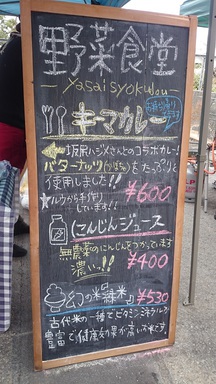 野菜食堂
-yasaisyokudou-
キーマカレー
坂原ハジメさんのコラボカレー!
バターナッツ(かぼちゃ)をたっぷりと
使用しました!!
★ルウから手作り
しています!! ¥600
にんじんジュース
無農薬のにんじんをつかってます
濃いっ!! ¥400
幻の米"緑米" ¥530
古代米の一種でビタミン、ミネラルが
豊富で健康効果が高いお米です。